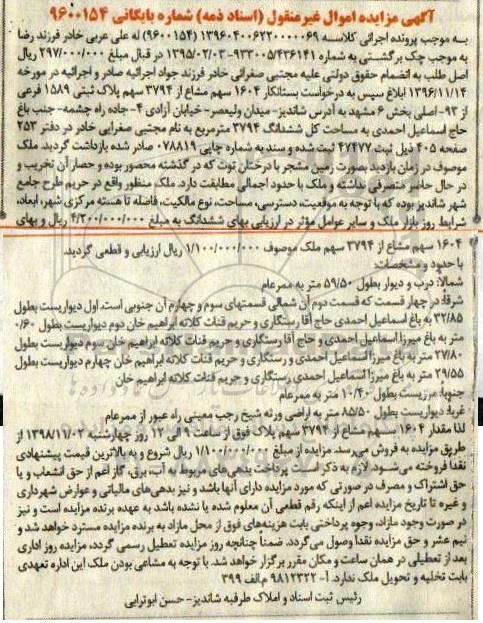 آگهی مزایده اموال غیرمنقول (اسناد ذمه) شماره بایگانی ۹۶۰۰۱۵۴
به موجب پرونده اجرائی کلاسه ۱۳۹۶۰۴۰۰۶۲۲۰۰۰۰۶۹ (۹۶۰۰۱۵۴) له علی عربی خادر فرزند رضا
به موجب چک برگشتی به شماره ۹۳۳۰۰۵/۴۳۶۱۴۱-۱۳۹۵/۰۲/۰۳ در قبال مبلغ ۲۹۷/۰۰۰/۰۰۰ ریال
اصل طلب به انضمام حقوق دولتی علیه مجتبی صفرائی خادر فرزند جواد اجرائیه صادر و اجرائیه در مورخه
۱۳۹۶/۱۱/۱۴ ابلاغ سپس به درخواست بستانکار ۱۶۰۴ سهم مشاع از ۳۷۹۴ سهم پلاک ثبتی ۱۵۸۹ فرعی
از ۹۳-اصلی بخش ۶ مشهد به آدرس شاندیز- میدان ولیعصر- خیابان آزادی ۴-جاده راه چشمه- جنب باغ
حاج اسماعیل احمدی به مساحت کل ششدانگ ۳۷۹۴ مترمربع به نام مجتبی صفرایی خادر در دفتر ۲۵۳
صفحه ۴۰۵ ذیل ثبت ۴۷۴۷۷ ثبت شده و سند به شماره چاپی ۰۷۸۸۱۹ صادر شده بازداشت گردید. ملک
موصوف در زمان بازدید بصورت زمین مشجر با درختان توت که در گذشته محصور بوده و حصار آن تخریب و
در حال حاضر متصرفی نداشته و ملک با حدود اجمالی مطابقت دارد. ملک منظور واقع در حریم طرح جامع
شهر شاندیز بوده که با توجه به موقعیت، دسترسی، مساحت، نوع مالکیت، فاصله تا هسته مرکزی شهر، ابعاد،
شرایط روز بازار ملک و سایر عوامل مؤثر در ارزیابی بهای ششدانگ به مبلغ ۴/۲۰۰/۰۰۰/۰۰۰ ریال و بهای
۱۶۰۴ سهم مشاع از ۳۷۹۴ سهم ملک موصوف ۱/۱۰۰/۰۰۰/۰۰۰ ریال ارزیابی و قطعی گردید.
با حدود و مشخصات:
شمالا: درب و دیوار بطول ۵۹/۵۰ متر به ممرعام
شرقا: در چهار قسمت که قسمت دوم آن شمالی قسمتهای سوم و چهارم آن جنوبی است. اول دیواریست بطول
۳۲/۸۵ به باغ اسماعیل احمدی حاج آقا رستگاری و حریم قنات کلاته ابراهیم خان دوم دیواریست بطول ۰/۶۰
متر به باغ میرزا اسماعیل احمدی و حاج آقا رستگاری و حریم قنات کلاته ابراهیم خان سوم دیواریست بطول
۲۷/۸۰ متر به باغ میرزا اسماعیل احمدی و رستگاری و حریم قنات کلاته ابراهیم خان چهارم دیواریست بطول
۲۹/۵۵ متر به باغ میرزا اسماعیل احمدی رستگاری و حریم قنات کلاته ابراهیم خان
جنوبا: مرزیست بطول ۱۰/۴۰ متر به ممرعام
غربا: دیواریست بطول ۸۵/۵۰ متر به اراضی ورثه شیخ رجب معینی راه عبور از ممرعام
لذا مقدار ۱۶۰۴ سهم مشاع از ۳۷۹۴ سهم پلاک فوق از ساعت ۹ الی ۱۲ روز چهارشنبه ۱۳۹۸/۱۱/۰۲ از
طریق مزایده به فروش می‌رسد. مزایده از مبلغ ۱/۱۰۰/۰۰۰/۰۰۰ ریال شروع و به بالاترین قیمت پیشنهادی
نقدا فروخته می‌شود. لازم به ذکر است پرداخت بدهی‌های مربوط به آب، برق، گاز اعم از حق انشعاب و یا
حق اشتراک و مصرف در صورتی که مورد مزایده دارای آنها باشد و نیز بدهی‌های مالیاتی و عوارض شهرداری
و غیره تا تاریخ مزایده اعم از اینکه رقم قطعی آن معلوم شده یا نشده باشد به عهده برنده مزایده است و نیز
در صورت وجود مازاد، وجوه پرداختی بابت هزینه‌های فوق از محل مازاد به برنده مزایده مسترد خواهد شد و
نیم عشر و حق مزایده نقدا وصول می‌گردد. ضمنا چنانچه روز مزایده تعطیل رسمی گردد، مزایده روز اداری
بعد از تعطیلی در همان ساعت و مکان مقرر برگزار خواهد شد. با توجه به مشاعی بودن ملک این اداره تعهدی
بابت تخلیه و تحویل ملک ندارد. آ- ۹۸۱۲۳۲۲ م.الف ۳۹۹
رئیس ثبت اسناد و املاک طرقبه شاندیز- حسن ابوترابی